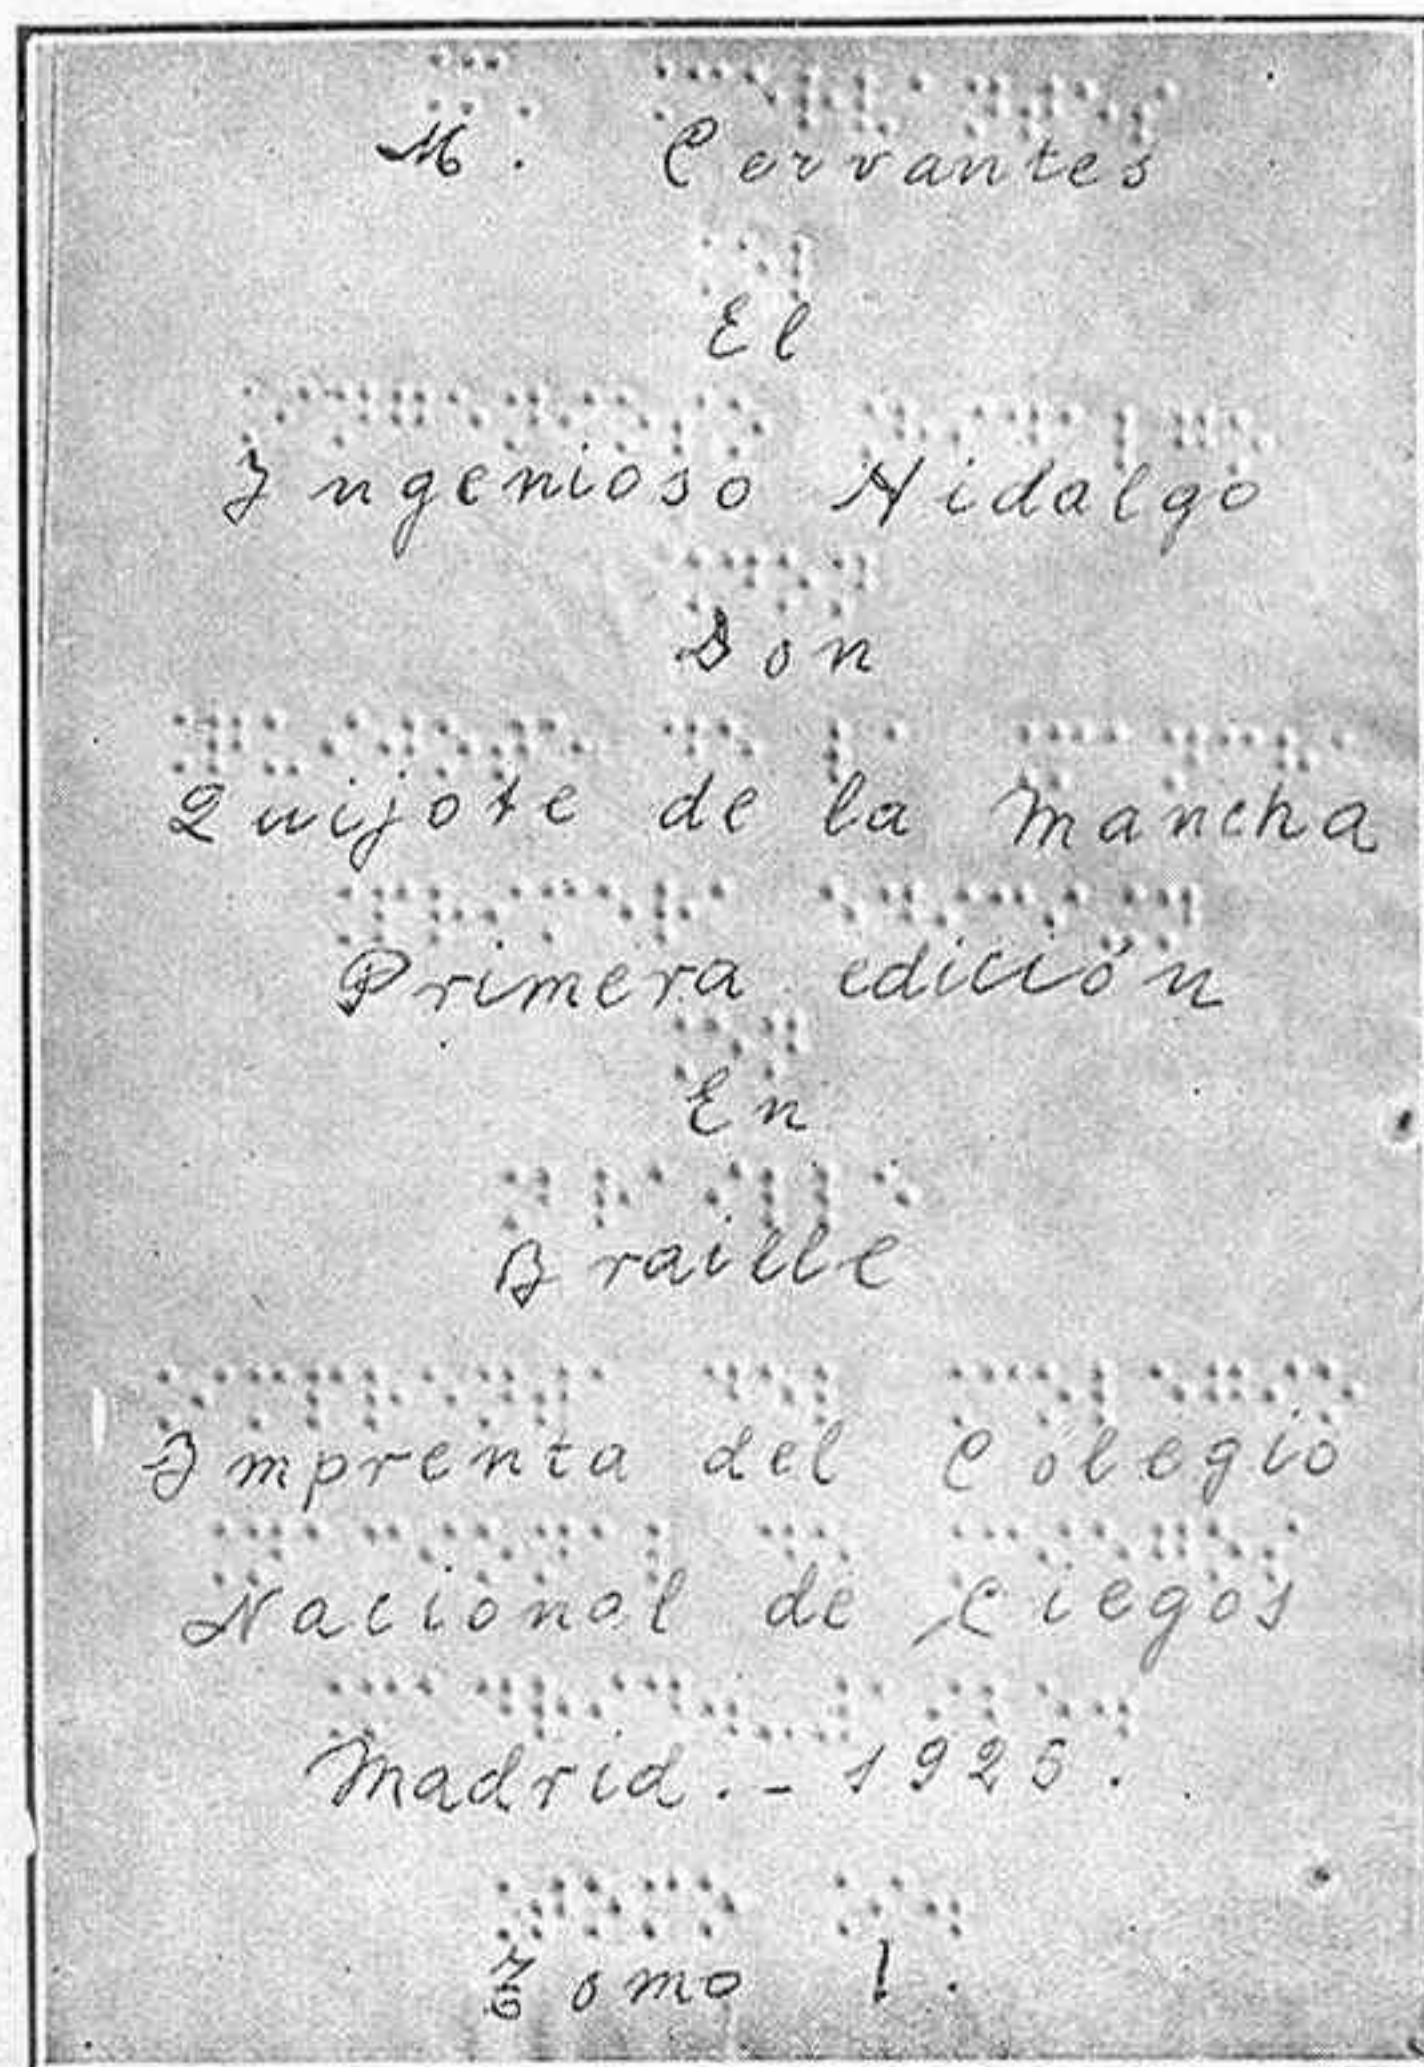 M. Cervantes
El
Ingenioso Hidalgo
Don
Quijote de la Mancha
Primera edición
En
Braille
Imprenta del Colegio
Nacional de Ciegos
Madrid.- 1925.
Tomo I.